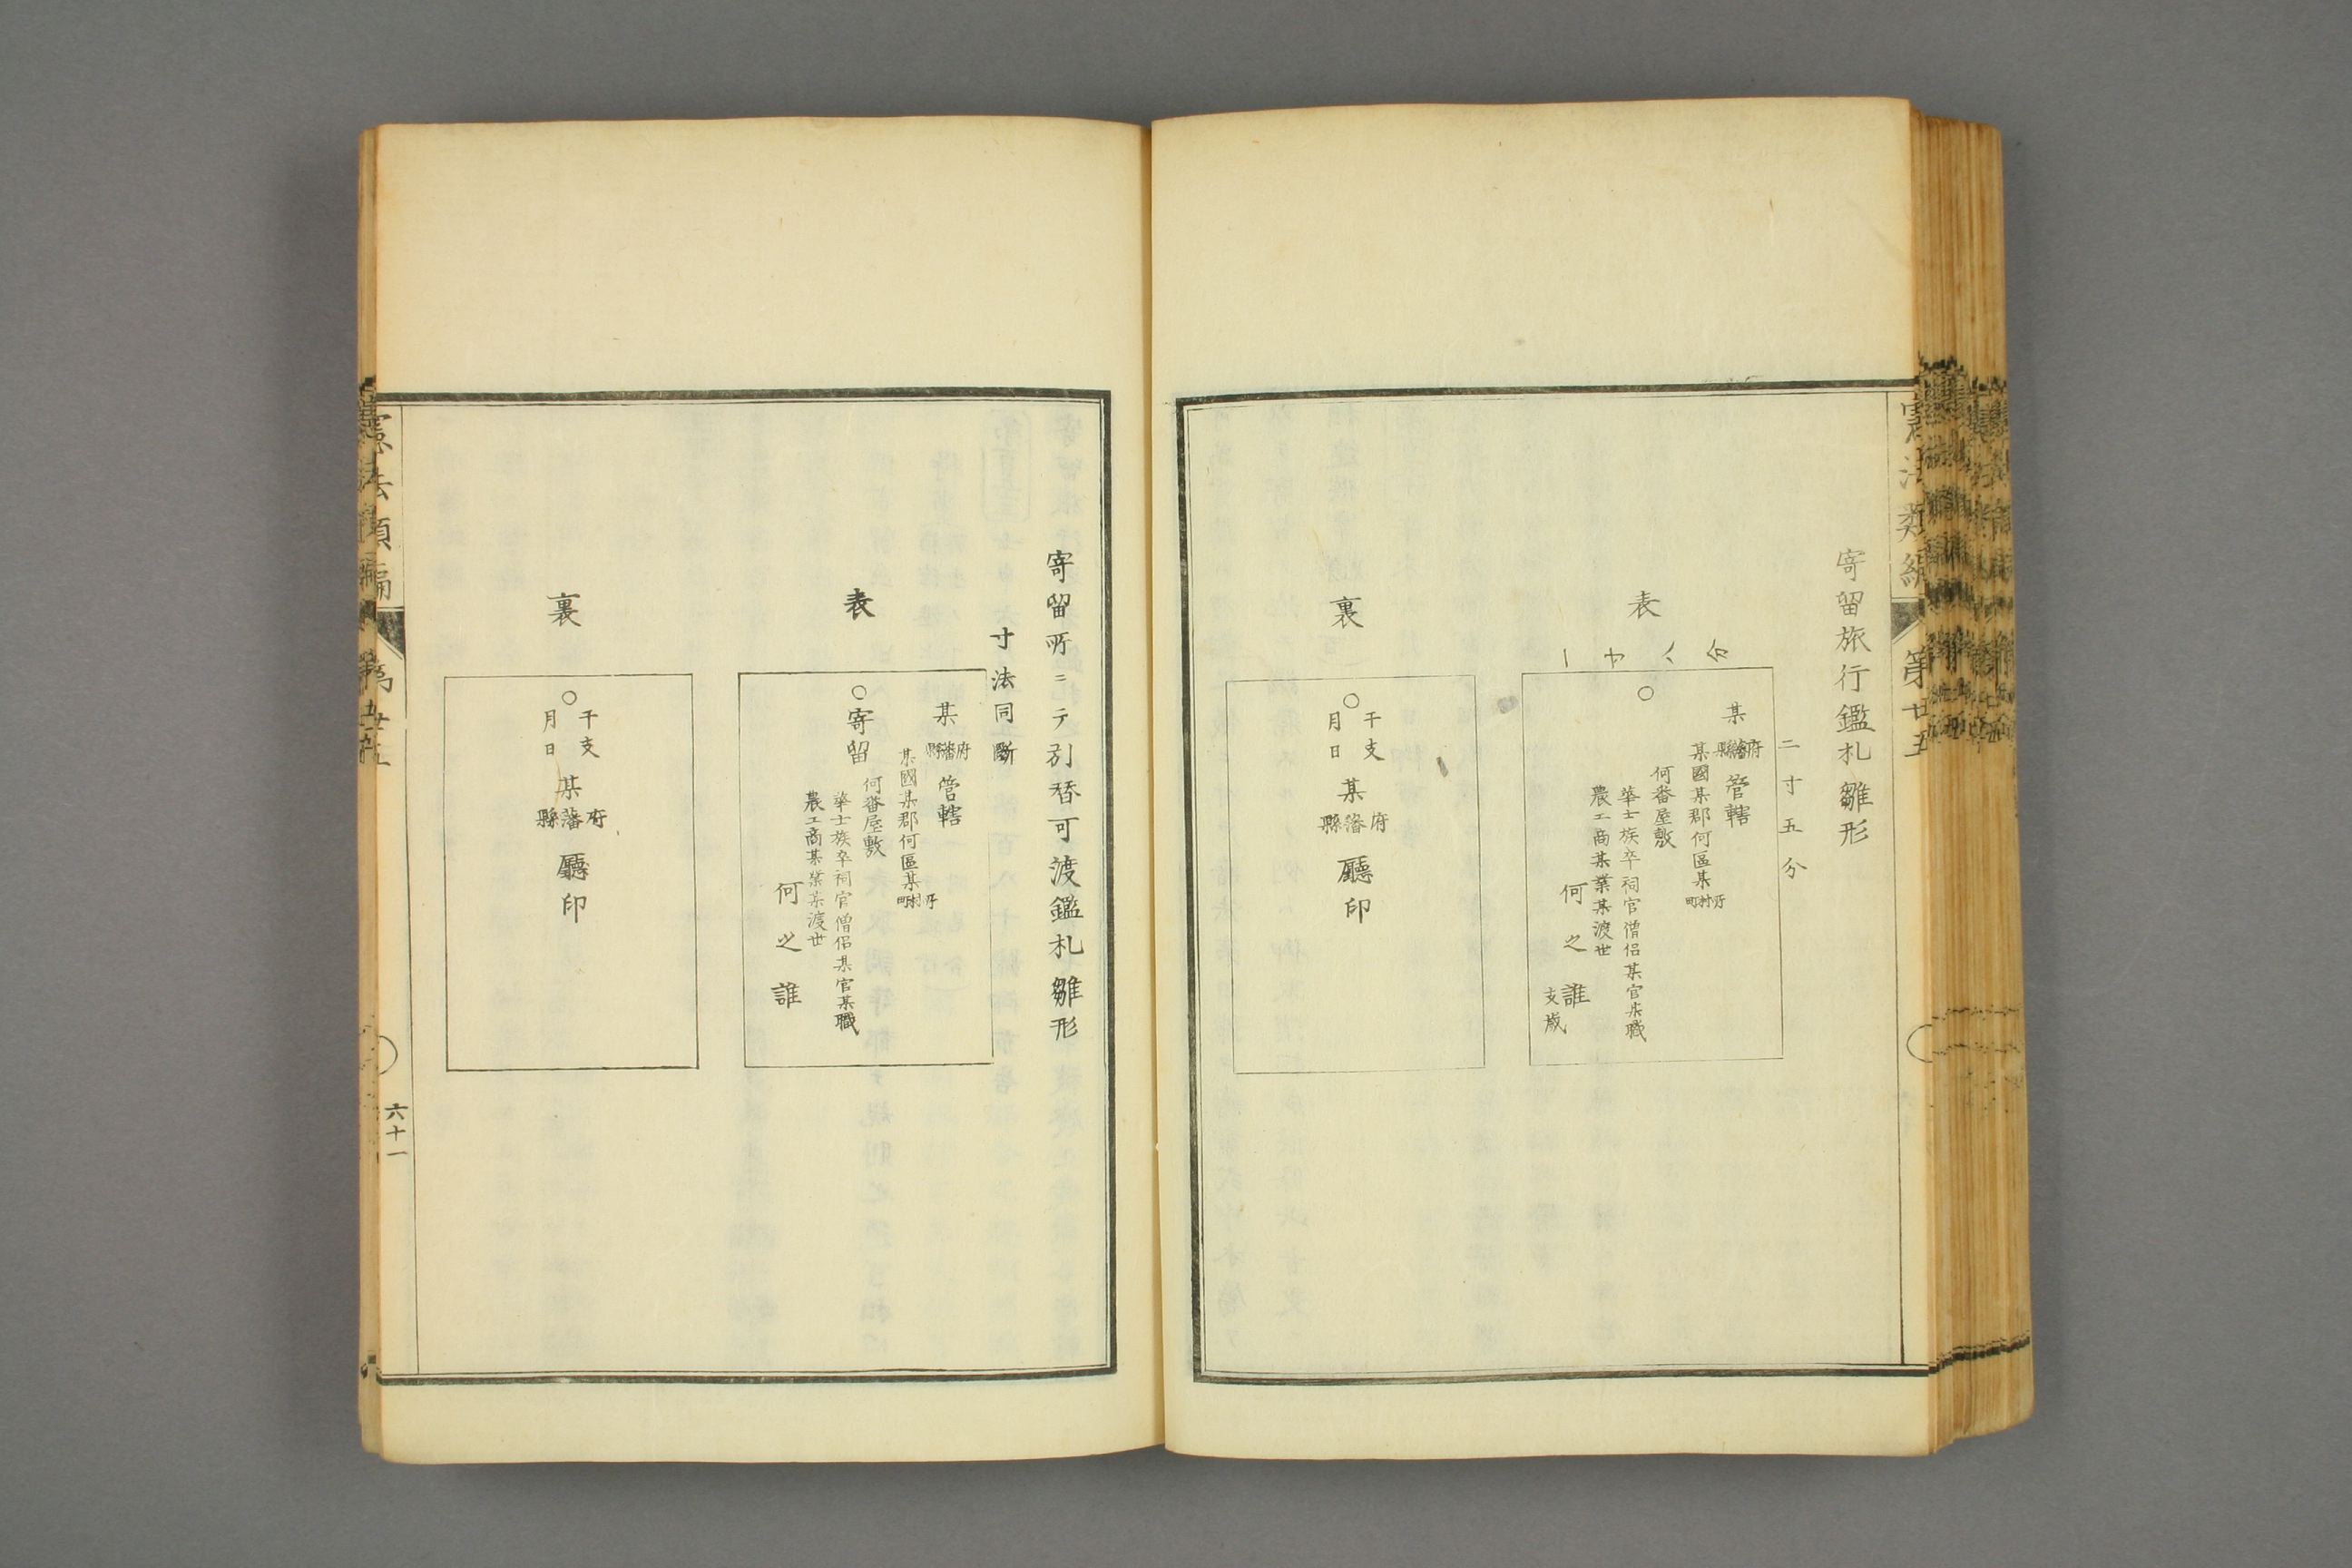 憲法類編
第廿五
寄留旅行鑑札雛形
二寸五分
表
一寸八分
某府藩縣管轄
某國某郡何區某町村所
何番屋敷
華士族卒祠官僧侶某官某職
農工商某業某渡世
何之誰
支歳
裏
干支
月日
某府藩縣廳印
寄留所ニテ引替可渡鑑札雛形
寸法同斷
表
某府藩縣管轄
某國某郡何區某町村所
寄留
何番屋敷
華士族卒祠官僧侶某官某職
農工商某業某渡世
何之誰
裏
干支
月日
某府藩縣廳印
憲法類編
六十一